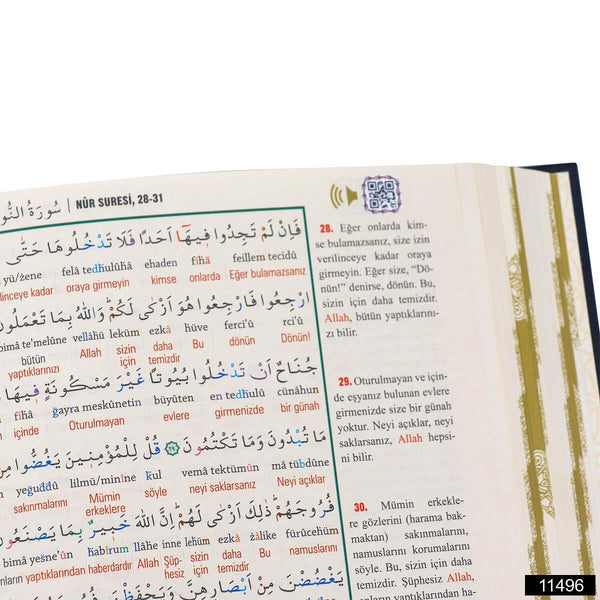 سُورَةُ النُّو
NÛR SURESİ, 28-31
فَاِنْ لَمْ تَجِدُوا ف۪يهَٓا اَحَدًا فَلَا تَدْخُلُوهَا حَتّٰى
yü/žene felâ tedhulûhâ ehaden fîhâ feillem tecidû
verilinceye kadar oraya girmeyin kimse onlarda Eğer bulamazsanız
ارْجِعُوا فَارْجِعُوا هُوَ اَزْكٰى لَكُمْ وَاللّٰهُ بِمَا تَعْمَلُونَ
bimâ te'melûne vellâhü leküm ezkâ hüve ferci'û rci'û
bütün yaptıklarınızı Allah sizin için daha temizdir Bu dönün Dönün!
جُنَاحٌ اَنْ تَدْخُلُوا بُيُوتًا غَيْرَ مَسْكُونَةٍ ف۪يهَا
fîhâ ğayra meskûnetin büyûten en tedhulû cünâhun
içinde Oturulmayan evlere girmenizde bir günah
مَا تُبْدُونَ وَمَا تَكْتُمُونَ ﴿٢٩﴾ قُلْ لِلْمُؤْمِن۪ينَ يَغُضُّوا مِنْ
yeğuddû lilmü/minîne kul vemâ tektümûn mâ tübdûne
sakınmalarını Mümin erkeklere söyle neyi saklarsanız Neyi açıklar
فُرُوجَهُمْ ذٰلِكَ اَزْكٰى لَهُمْ اِنَّ اللّٰهَ خَب۪يرٌ بِمَا يَصْنَعُونَ
bimâ yešne'ûn habîrum llâhe inne lehüm ezkâ žâlike fürûcehüm
onların yaptıklarından haberdardır Allah Şüphesiz için sizin daha temizdir Bu namuslarını
يَغْضُضْنَ مِنْ اَبْصَارِهِنَّ وَيَحْفَظْنَ
28. Eğer onlarda kim-
se bulamazsanız, size izin
verilinceye kadar oraya
girmeyin. Eğer size, "Dö-
nün!" denirse, dönün. Bu,
sizin için daha temizdir.
Allah, bütün yaptıklarını-
zı bilir.
29. Oturulmayan ve için-
de eşyanız bulunan evlere
girmenizde size bir günah
yoktur. Neyi açıklar, neyi
saklarsanız, Allah hepsi-
ni bilir.
30. Mümin erkekle-
re gözlerini (harama bak-
maktan) sakınmalarını,
namuslarını korumalarını
söyle. Bu, sizin için daha
temizdir. Şüphesiz Allah,
onların yaptıklarından ha-
11496